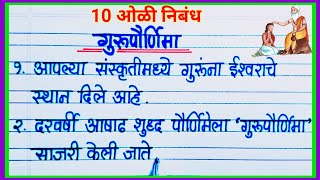 10 ओळी निबंध
गुरुपौर्णिमा
१. आपल्या संस्कृतीमध्ये गुरुंना ईश्वराचे
स्थान दिले आहे.
२. दरवर्षी आषाढ शुध्द पौर्णिमेला 'गुरुपौर्णिमा'
साजरी केली जाते